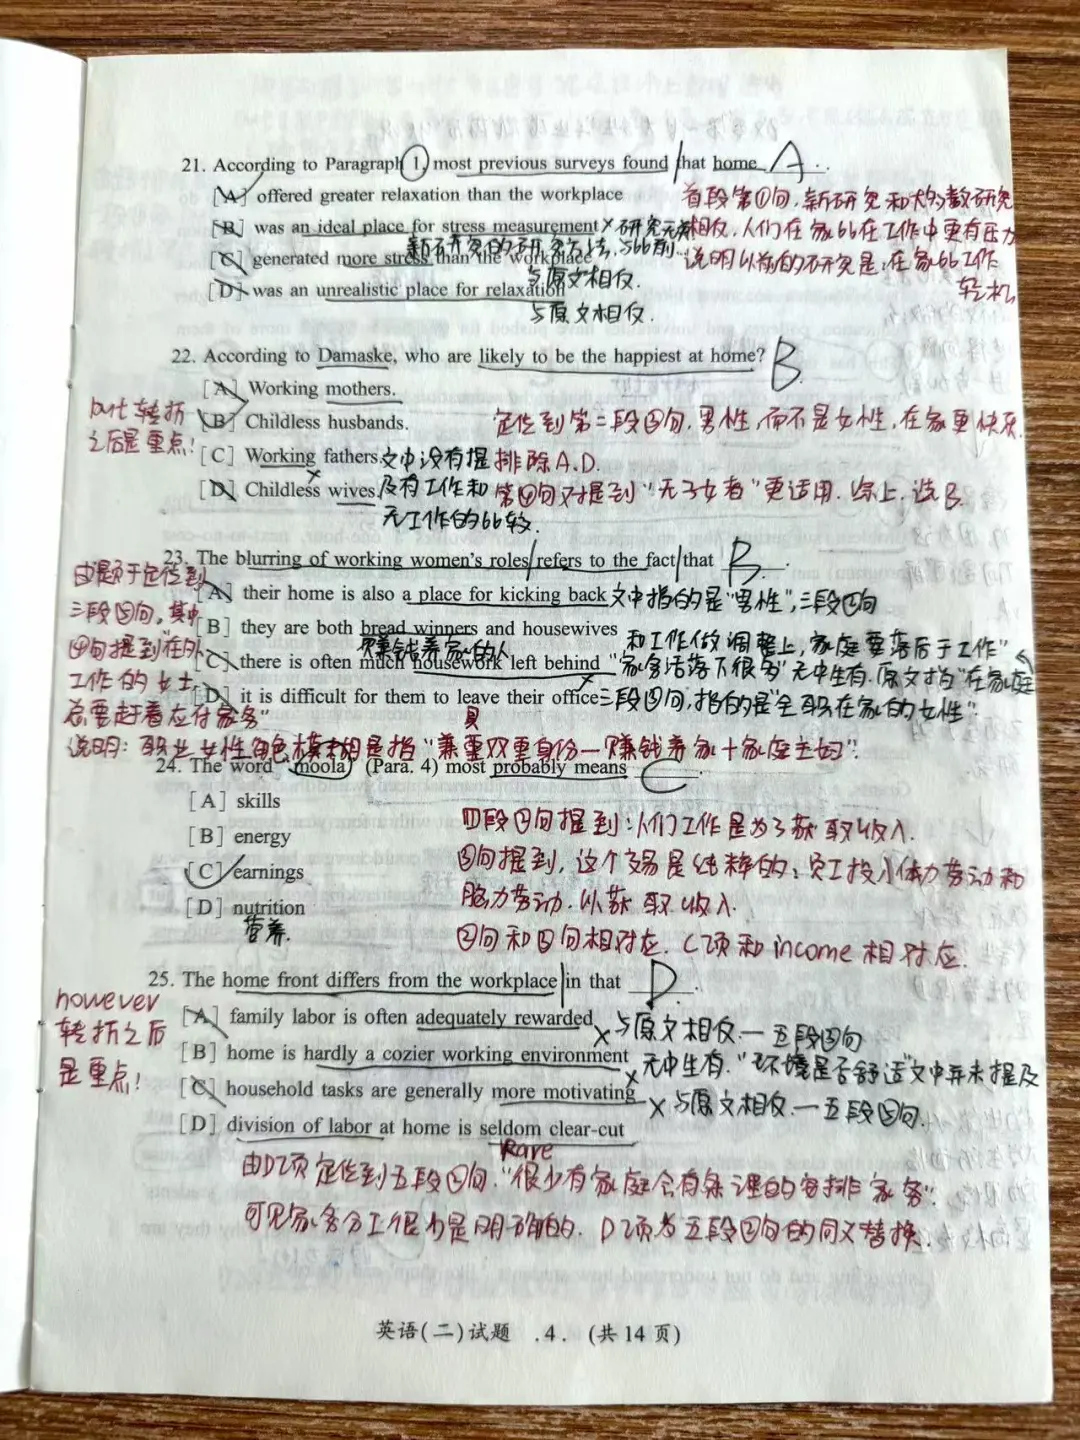 21. According to Paragraph 1, most previous surveys found that home A.
[A] offered greater relaxation than the workplace
[B] was an ideal place for stress measurement × 研究无关
[C] generated more stress than the workplace
新研究的研究方法,与此前
与原文相反.
[D] was an unrealistic place for relaxation
与原文相反.
首段第①句,新研究和大多数研究
相反,人们在家比在工作中更有压力
说明以前的研究是:在家比工作
轻松
22. According to Damaske, who are likely to be the happiest at home? B.
[A] Working mothers.
[B] Childless husbands.
[C] Working fathers. 文中没有提
[D] Childless wives. 及有工作和
无工作的比较.
but 转折
之后是重点!
定位到第二段③句,男性,而不是女性,在家更快乐.
排除A.D.
第④句又提到"无子女者"更适用.综上,选B.
23. The blurring of working women's roles refers to the fact that B.
[A] their home is also a place for kicking back 文中指的是"男性",三段②句
[B] they are both bread winners and housewives
赚钱养家的人
和工作做调整上,家庭要落后于工作"
[C] there is often much housework left behind "家务活落下很多"无中生有.原文指"在家庭
[D] it is difficult for them to leave their office 三段③句,指的是"全职在家的女性"
由题干定位到
三段③句,其中
④句提到"在外
工作的女士
总要赶着应付家务"
说明:职业女性角色模糊是指"兼具双重身份—赚钱养家+家庭主妇".
24. The word "moola" (Para. 4) most probably means C.
[A] skills
[B] energy
[C] earnings
[D] nutrition
营养.
四段②句提到:人们工作是为了获取收入.
③句提到,这个交易是纯粹的:员工投入体力劳动和
脑力劳动.以获取收入.
②句和③句相对应.C项和income相对应.
25. The home front differs from the workplace in that D.
[A] family labor is often adequately rewarded × 与原文相反—五段③句
[B] home is hardly a cozier working environment × 无中生有."环境是否舒适"文中并未提及
[C] household tasks are generally more motivating × 与原文相反.—五段⑤句.
[D] division of labor at home is seldom clear-cut
Rare
however
转折之后
是重点!
由D项定位到五段②句."很少有家庭会有条理的安排家务".
可见家务分工很少是明确的. D项为五段②句的同义替换.
英语(二)试题 .4. (共14页)